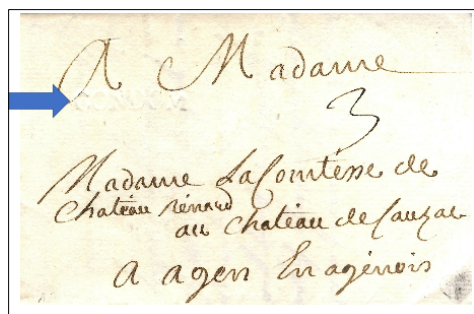 A Madame
3
Madame La Comtesse de
Chateau Rénard
au chateau de Cauzac
a agen En agénois